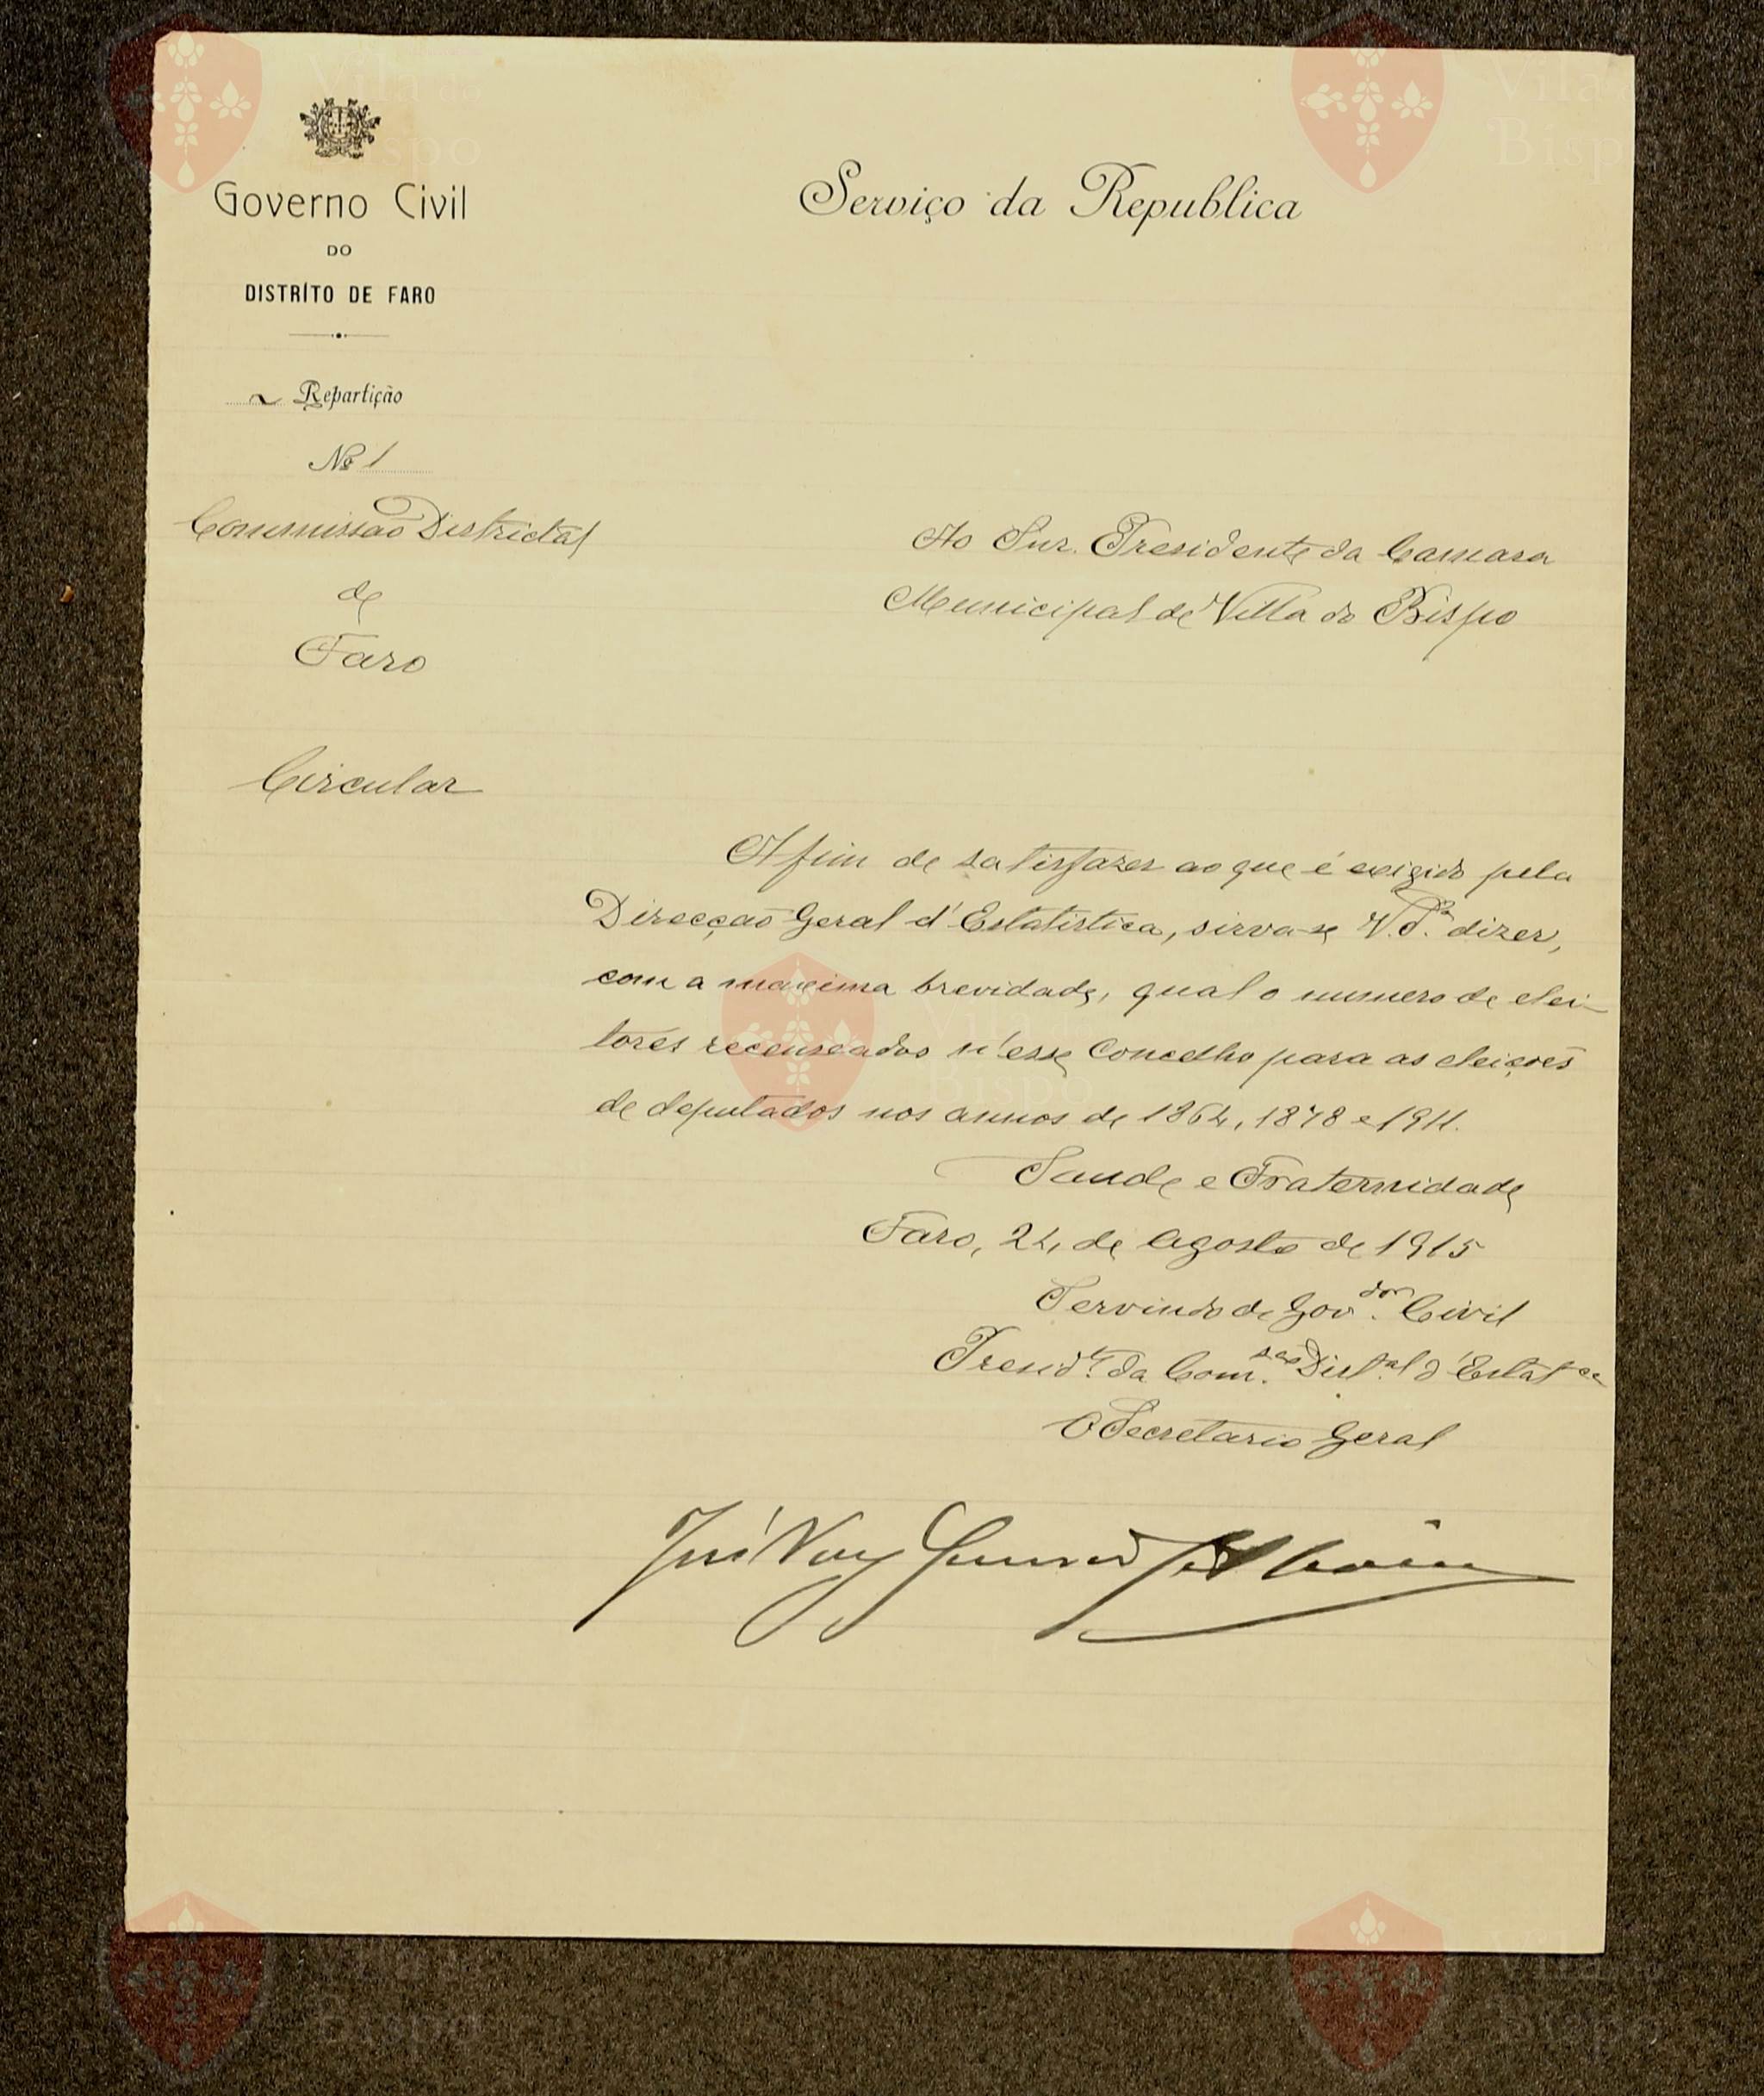 Governo Civil
DO
DISTRÍTO DE FARO
Repartição
Nº 1
Commissão Districtal
de
Faro
Circular
Serviço da Republica
Ao Snr. Presidente da Camara
Municipal de Villa do Bispo
Afim de satisfazer ao que é exigido pela
Direcção Geral d'Estatistica, sirva-se V. S.ª dizer,
com a maxima brevidade, qual o numero de elei-
tores recenseados n'esse Concelho para as eleições
de deputados nos annos de 1864, 1878 e 1911.
Saude e Fraternidade
Faro, 24 de Agosto de 1915
Servindo de Gov.dor Civil
Presid.te da Com.são Dist.al d'Estat.ca
O Secretario Geral
José Vaz
Vila do
Bispo
Vila do
Bispo
Vila do
Bispo
Vila do
Bispo
Vila do
Bispo